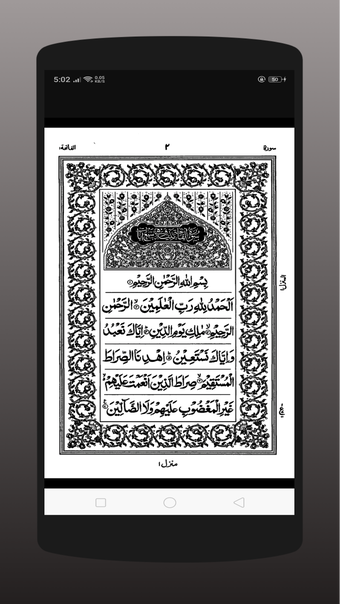 5:02
0.05
KB/S
50
سورة
٢
الفاتحة١
بِسْمِ اللهِ الرَّحْمٰنِ الرَّحِيْمِ
اَلْحَمْدُ لِلّٰهِ رَبِّ الْعٰلَمِيْنَ ۞ الرَّحْمٰنِ
الرَّحِيْمِ ۞ مٰلِكِ يَوْمِ الدِّيْنِ ۞ اِيَّاكَ نَعْبُدُ
وَاِيَّاكَ نَسْتَعِيْنُ ۞ اِهْدِنَا الصِّرَاطَ
الْمُسْتَقِيْمَ ۞ صِرَاطَ الَّذِيْنَ اَنْعَمْتَ عَلَيْهِمْ
غَيْرِ الْمَغْضُوْبِ عَلَيْهِمْ وَلَا الضَّآلِّيْنَ ۞
منزل١